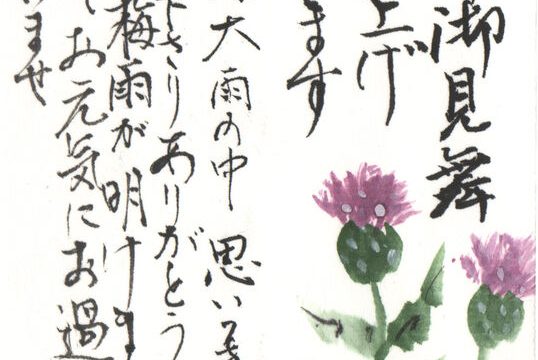 御見舞
上げ
ます
大雨の中 思い
さり ありがとう
梅雨が明けま
お元気にお過
ませ